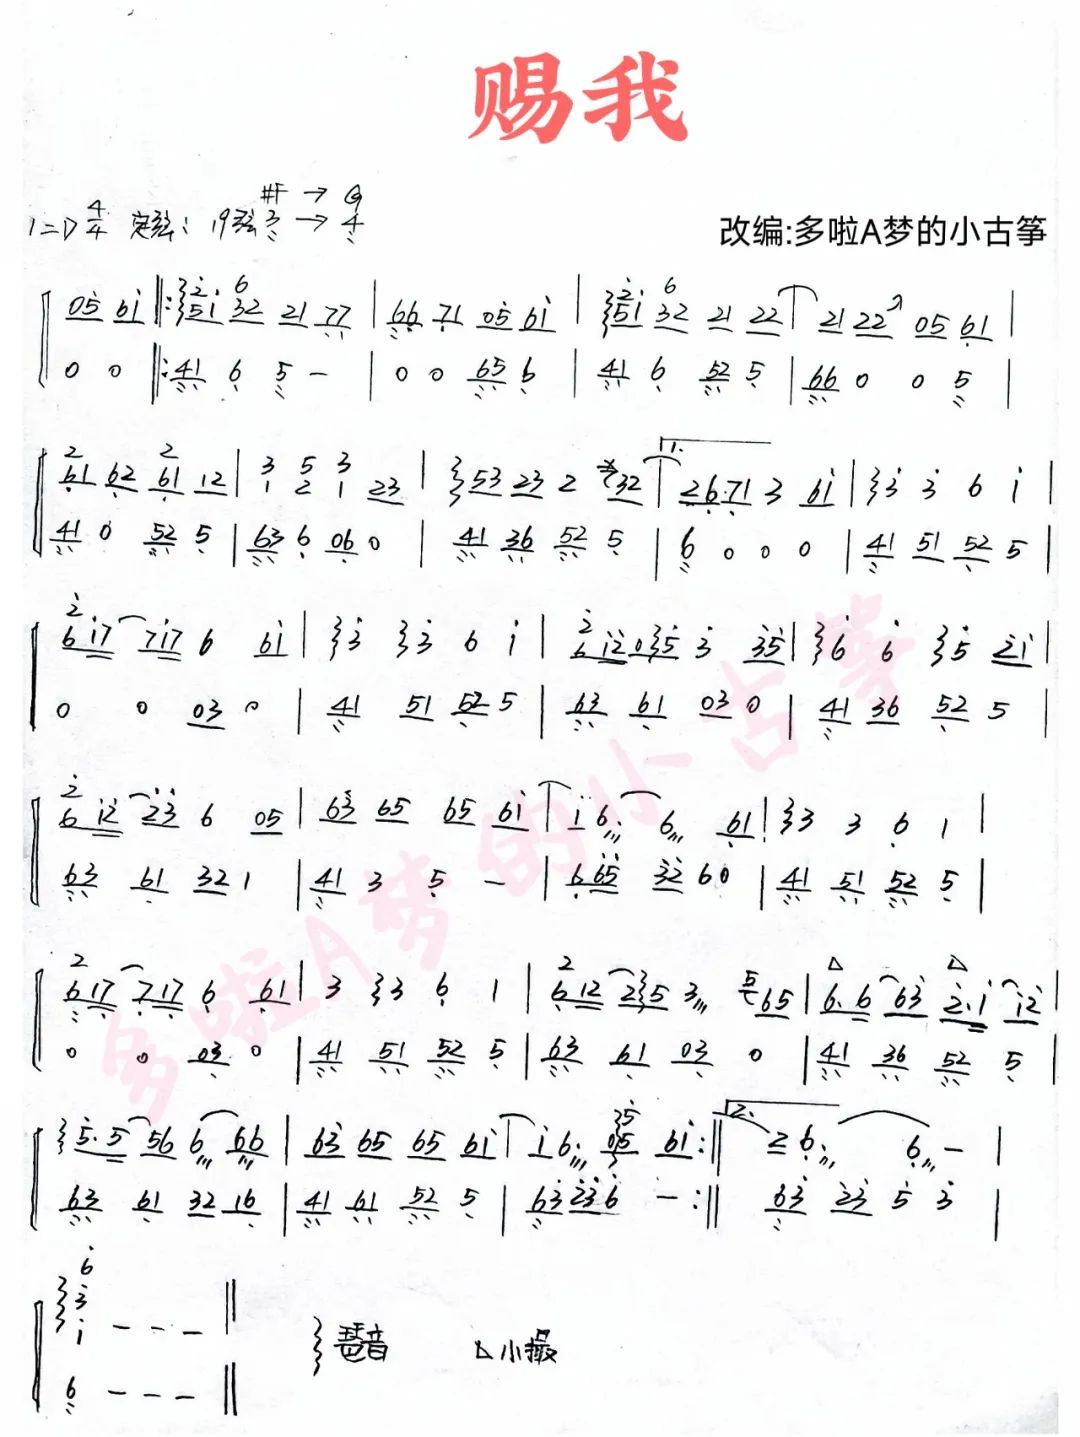 赐我
#F → G
1=D 4/4 定弦: 19弦 3 → 4
改编:多啦A梦的小古筝
05 61 ‖: 51 32 21 77 | 66 71 05 61 | 51 32 21 22 | 21 22 05 61 |
0 0 ‖: 41 6 5 - | 0 0 65 6 | 41 6 52 5 | 66 0 0 5 |
61 62 61 12 | 1 2 1 23 | 53 23 2 32 | 1. 26 71 3 61 | 3 3 6 1 |
41 0 52 5 | 63 6 06 0 | 41 36 52 5 | 6 0 0 0 | 41 51 52 5 |
6 17 717 6 61 | 3 3 6 1 | 6 12 05 3 35 | 6 6 5 21 |
0 0 03 0 | 41 51 52 5 | 63 61 03 0 | 41 36 52 5 |
6 12 23 6 05 | 63 65 65 61 | 1 6. 6 61 | 3 3 6 1 |
63 61 32 1 | 41 3 5 - | 665 32 60 | 41 51 52 5 |
617 717 6 61 | 3 3 6 1 | 612 25 3 65 | 6.6 63 2.1 12 |
0 0 03 0 | 41 51 52 5 | 63 61 03 0 | 41 36 52 5 |
5.5 56 6 66 | 63 65 65 61 | 1 6. 05 61 :‖ 2. 2 6. 6 - |
63 61 32 16 | 41 61 52 5 | 63 23 6 - :‖ 63 23 5 3 |
6
3
1 - - - ‖
6 - - - ‖
琶音 △小撮
多啦A梦的小古筝